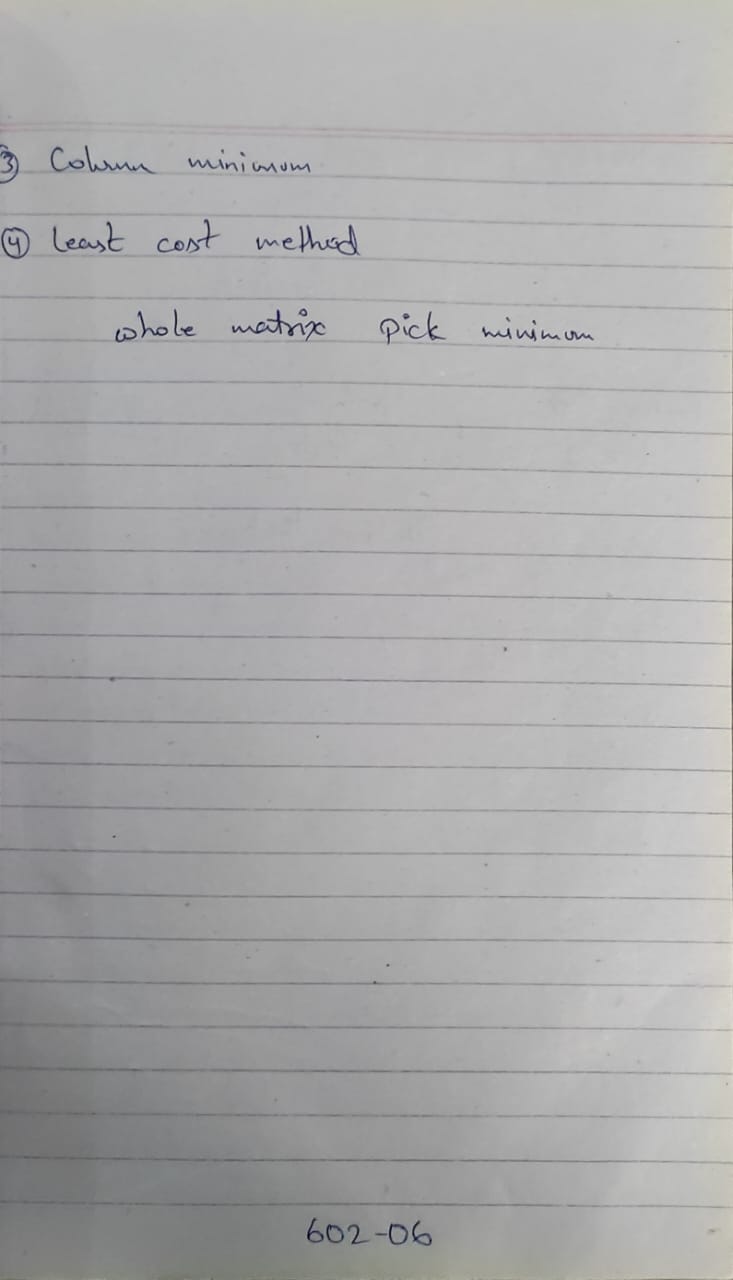 ③ Column minimum
④ least cost method
whole matrix pick minimum
602-06